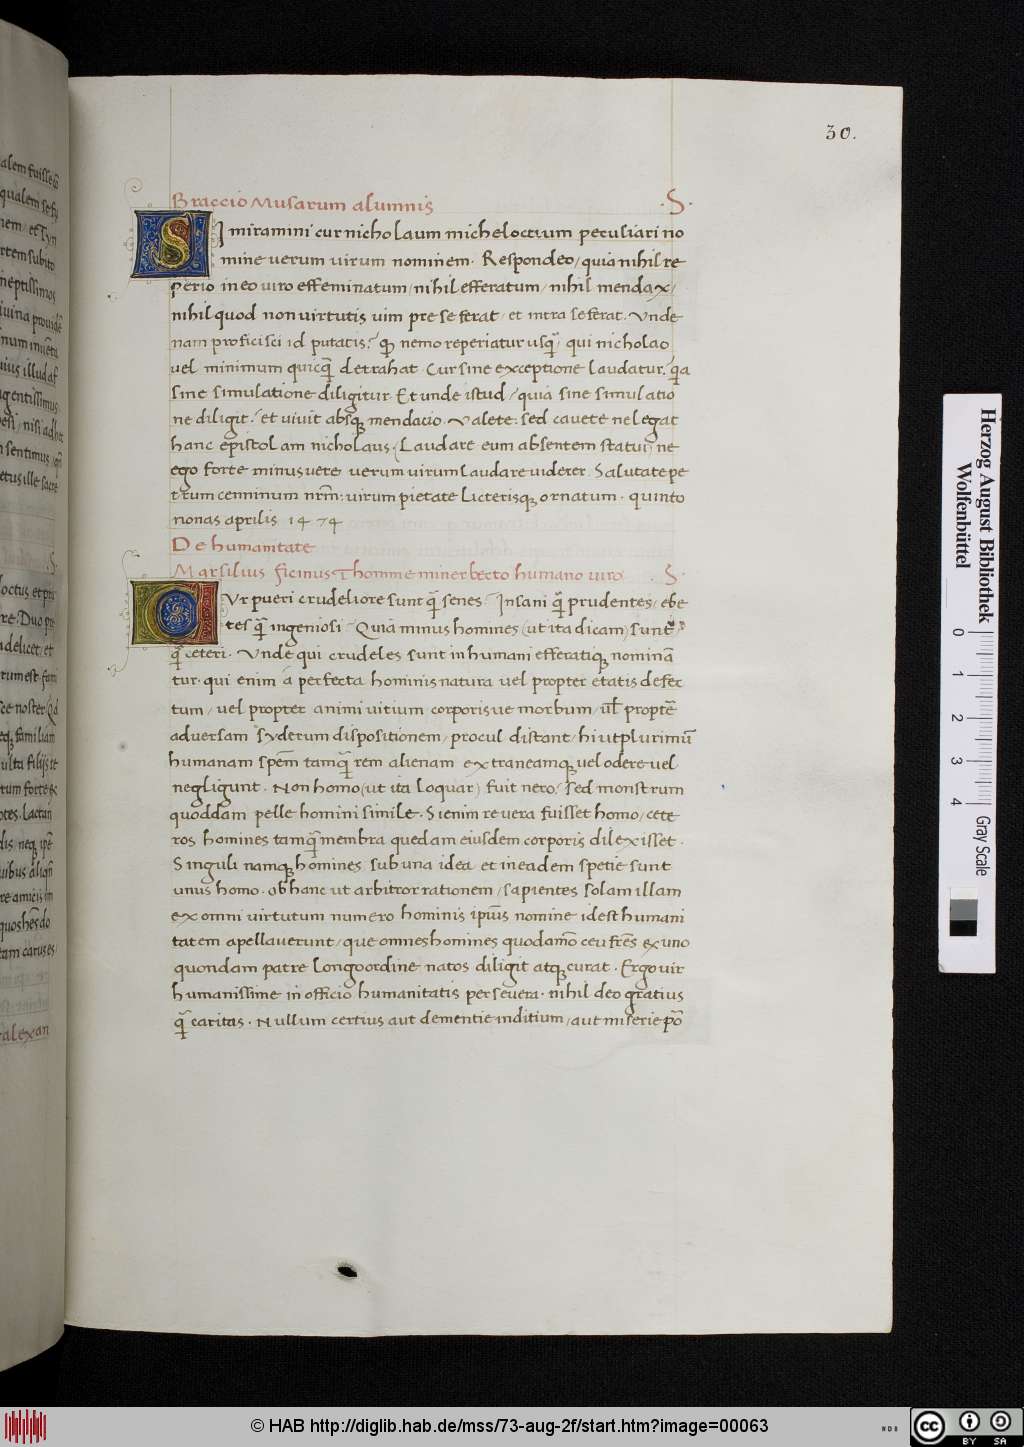 30.
Braccio Musarum alumnis .S.
SI miramini cur nicholaum micheloctium peculiari no
mine uerum uirum nominem. Respondeo, quia nihil re
perio in eo uiro effeminatum, nihil efferatum, nihil mendax,
nihil quod non uirtutis uim pre se ferat, et intra se ferat. Vnde
nam proficisci id putatis? qͥ nemo reperiatur usq̄, qui nicholao
uel minimum quicq̄ detrahat. Cur sine exceptione laudatur. q̄a
sine simulatione diligitur. Et unde istud, quia sine simulatio
ne diligit, et uiuit absqꝫ mendacio. Valete: sed cauete ne legat
hanc epistolam nicholaus. (Laudare eum absentem statui, ne
ego forte minus uere uerum uirum laudare uiderer. Salutate pe
trum cenninum nr̄m: uirum pietate licterisqꝫ ornatum. quinto
nonas aprilis 1474
De humanitate
Marsilius ficinus Thomme minerbecto humano uiro . S.
CVr pueri crudeliore sunt q̄ senes? Insani q̄ prudentes, ebe
tes q̄ ingeniosi? Quia minus homines (ut ita dicam) sunt,
q̄ ceteri. Vnde qui crudeles sunt inhumani efferatiqꝫ nominā
tur. qui enim a perfecta hominis natura uel propter etatis defec
tum, uel propter animi uitium corporisue morbum, ul̄ proptē
aduersam syderum dispositionem, procul distant, hi ut plurimū
humanam spēm tamq̄ rem alienam extraneamqꝫ uel odere uel
negligunt. Non homo (ut ita loquar) fuit nero, sed monstrum
quoddam pelle homini simile. Si enim reuera fuisset homo, cete
ros homines tamq̄ membra quedam eiusdem corporis dilexisset.
Singuli namqꝫ homines sub una idea et in eadem spetie sunt
unus homo. ob hanc ut arbitror rationem, sapientes solam illam
ex omni uirtutum numero hominis ipīus nomine idest humani
tatem apellauerunt, que omnes homines quodamō ceu fr̄es ex uno
quondam patre longo ordine natos diligit atqꝫ curat. Ergo uir
humanissime in officio humanitatis perseuera. nihil deo gratius
q̄ caritas. Nullum certius aut dementie inditium, aut miserie pō
Herzog August Bibliothek
Wolfenbüttel
0 1 2 3 4
Gray Scale
© HAB http://diglib.hab.de/mss/73-aug-2f/start.htm?image=00063
WDB
cc BY SA